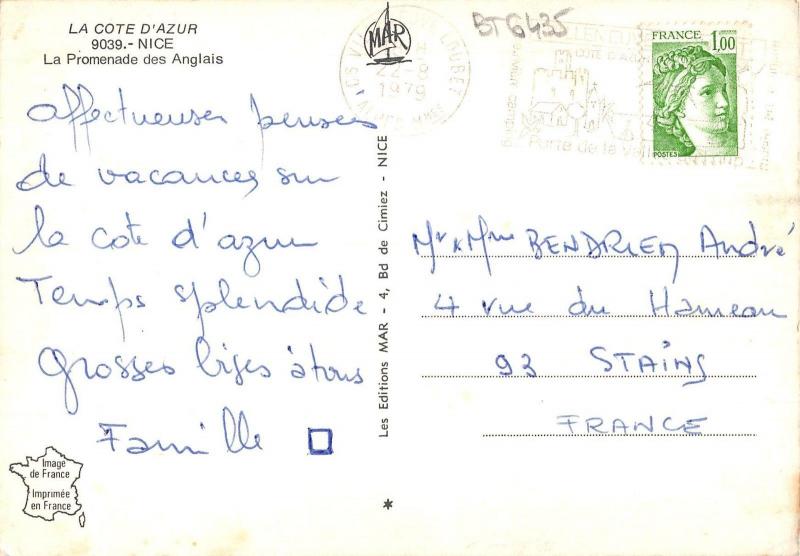 LA COTE D'AZUR
9039.- NICE
La Promenade des Anglais
MAR
BT6435
FRANCE 1,00
POSTES
LOUBET
22-8
1979
COTE D'AZUR
Porte de la
affectueuses pensées
de vacances sur
la cote d'azur
Temps splendide
grosses bises à tous
Famille □
Les Editions MAR - 4, Bd de Cimiez - NICE
Mr & Mme BENDRIEM André
4 rue du Hameau
93 STAINS
FRANCE
Image
de France
Imprimée
en France
*